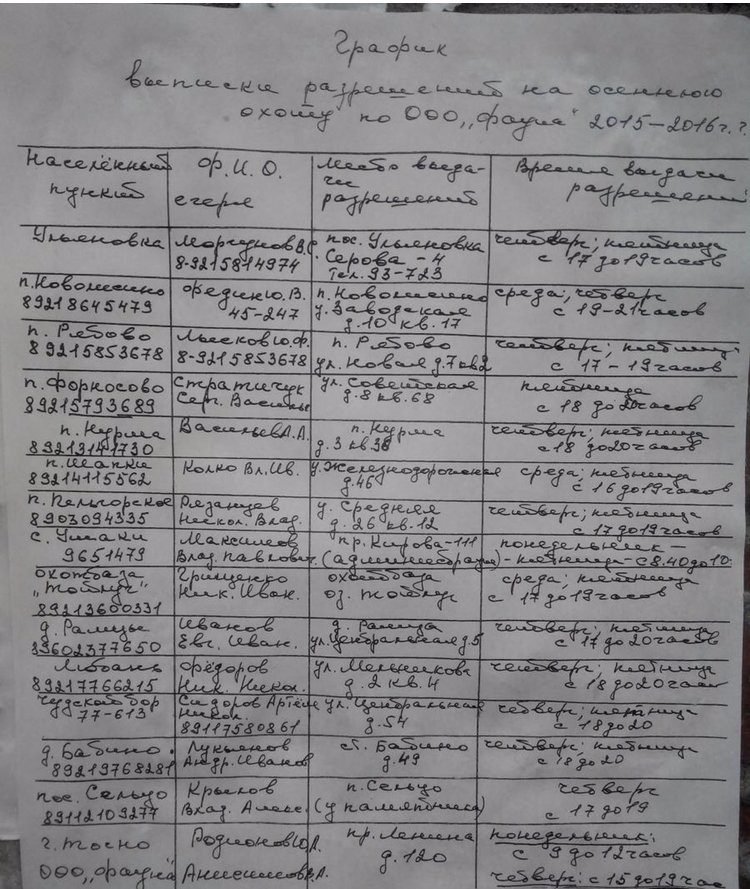 График
выписки разрешений на осеннюю
охоту по ООО „Фауна" 2015–2016 г.г.
Населённый пункт
Ф.И.О. егеря
Место выдачи разрешений
Время выдачи разрешений
Ульяновка
Моргунов В.С.
8-9215814974
пос. Ульяновка
Серова - 4
Тел. 93-723
четверг; пятница
с 17 до 19 часов
п. Новолисино
89218645479
Федин Ю.В.
45-247
п. Новолисино
у. Заводская
д.10 кв.17
среда; четверг
с 19-21 часов
п. Рябово
89215853678
Лысков Ю.Ф.
8-9215853678
п. Рябово
ул. Новая д.7 кв2
четверг; пятниц
с 17 - 19 часов
п. Форносово
89215793689
Стратичук
Серг. Василь
ул. Советская
д.8 кв.68
пятница
с 18 до 20 часов
п. Нурма
89213141730
Васильев А.А.
п. Нурма
д.3 кв 38
четверг; пятница
с 18 до 20 часов
п. Шапки
89214115562
Колко Вл. Ив.
у. Железнодорожная
д.46
среда; пятница
с 16 до 19 часов
п. Пельгорское
8903094335
Рязанцев
Никол. Влад.
у. Средняя
д. 26 кв. 12
четверг; пятница
с 17 до 19 часов
с. Ушаки
9651479
Максимов
Влад. Павлович
пр. Кирова-111
понедельник -
- пятница - с 8.40 до 10
охотбаза
89213600331
Грищенко
Ник. Иван.
охотбаза
среда; пятница
с 17 до 19 часов
39602377650
Иванов
Евг. Иван.
ул. Центральная д.5
четверг; пятница
с 17 до 20 часов
Любань
89217766215
Фёдоров
Ник. Никол.
ул. Мельникова
д. 2 кв. 4
четверг; пятница
с 18 до 20 часов
Чудской бор
77-613
Сидоров Артём
Никол.
89117580861
ул. Центральная
д.54
четверг; пятница
с 18 до 20
д. Бабино
89219768281
Лукьянов
Андр. Иванов
ст. Бабино
д.49
четверг; пятница
с 18 до 20
пос. Сельцо
89112109277
Крылов
Влад. Алекс.
п. Сельцо
(у памятника)
четверг
с 17 до 19
г. Тосно
ООО „Фауна"
Родионов Ю.А.
Анисимов В.А.
пр. Ленина
д. 120
понедельник:
с 9 до 12 часов
четверг: с 15 до 19 час